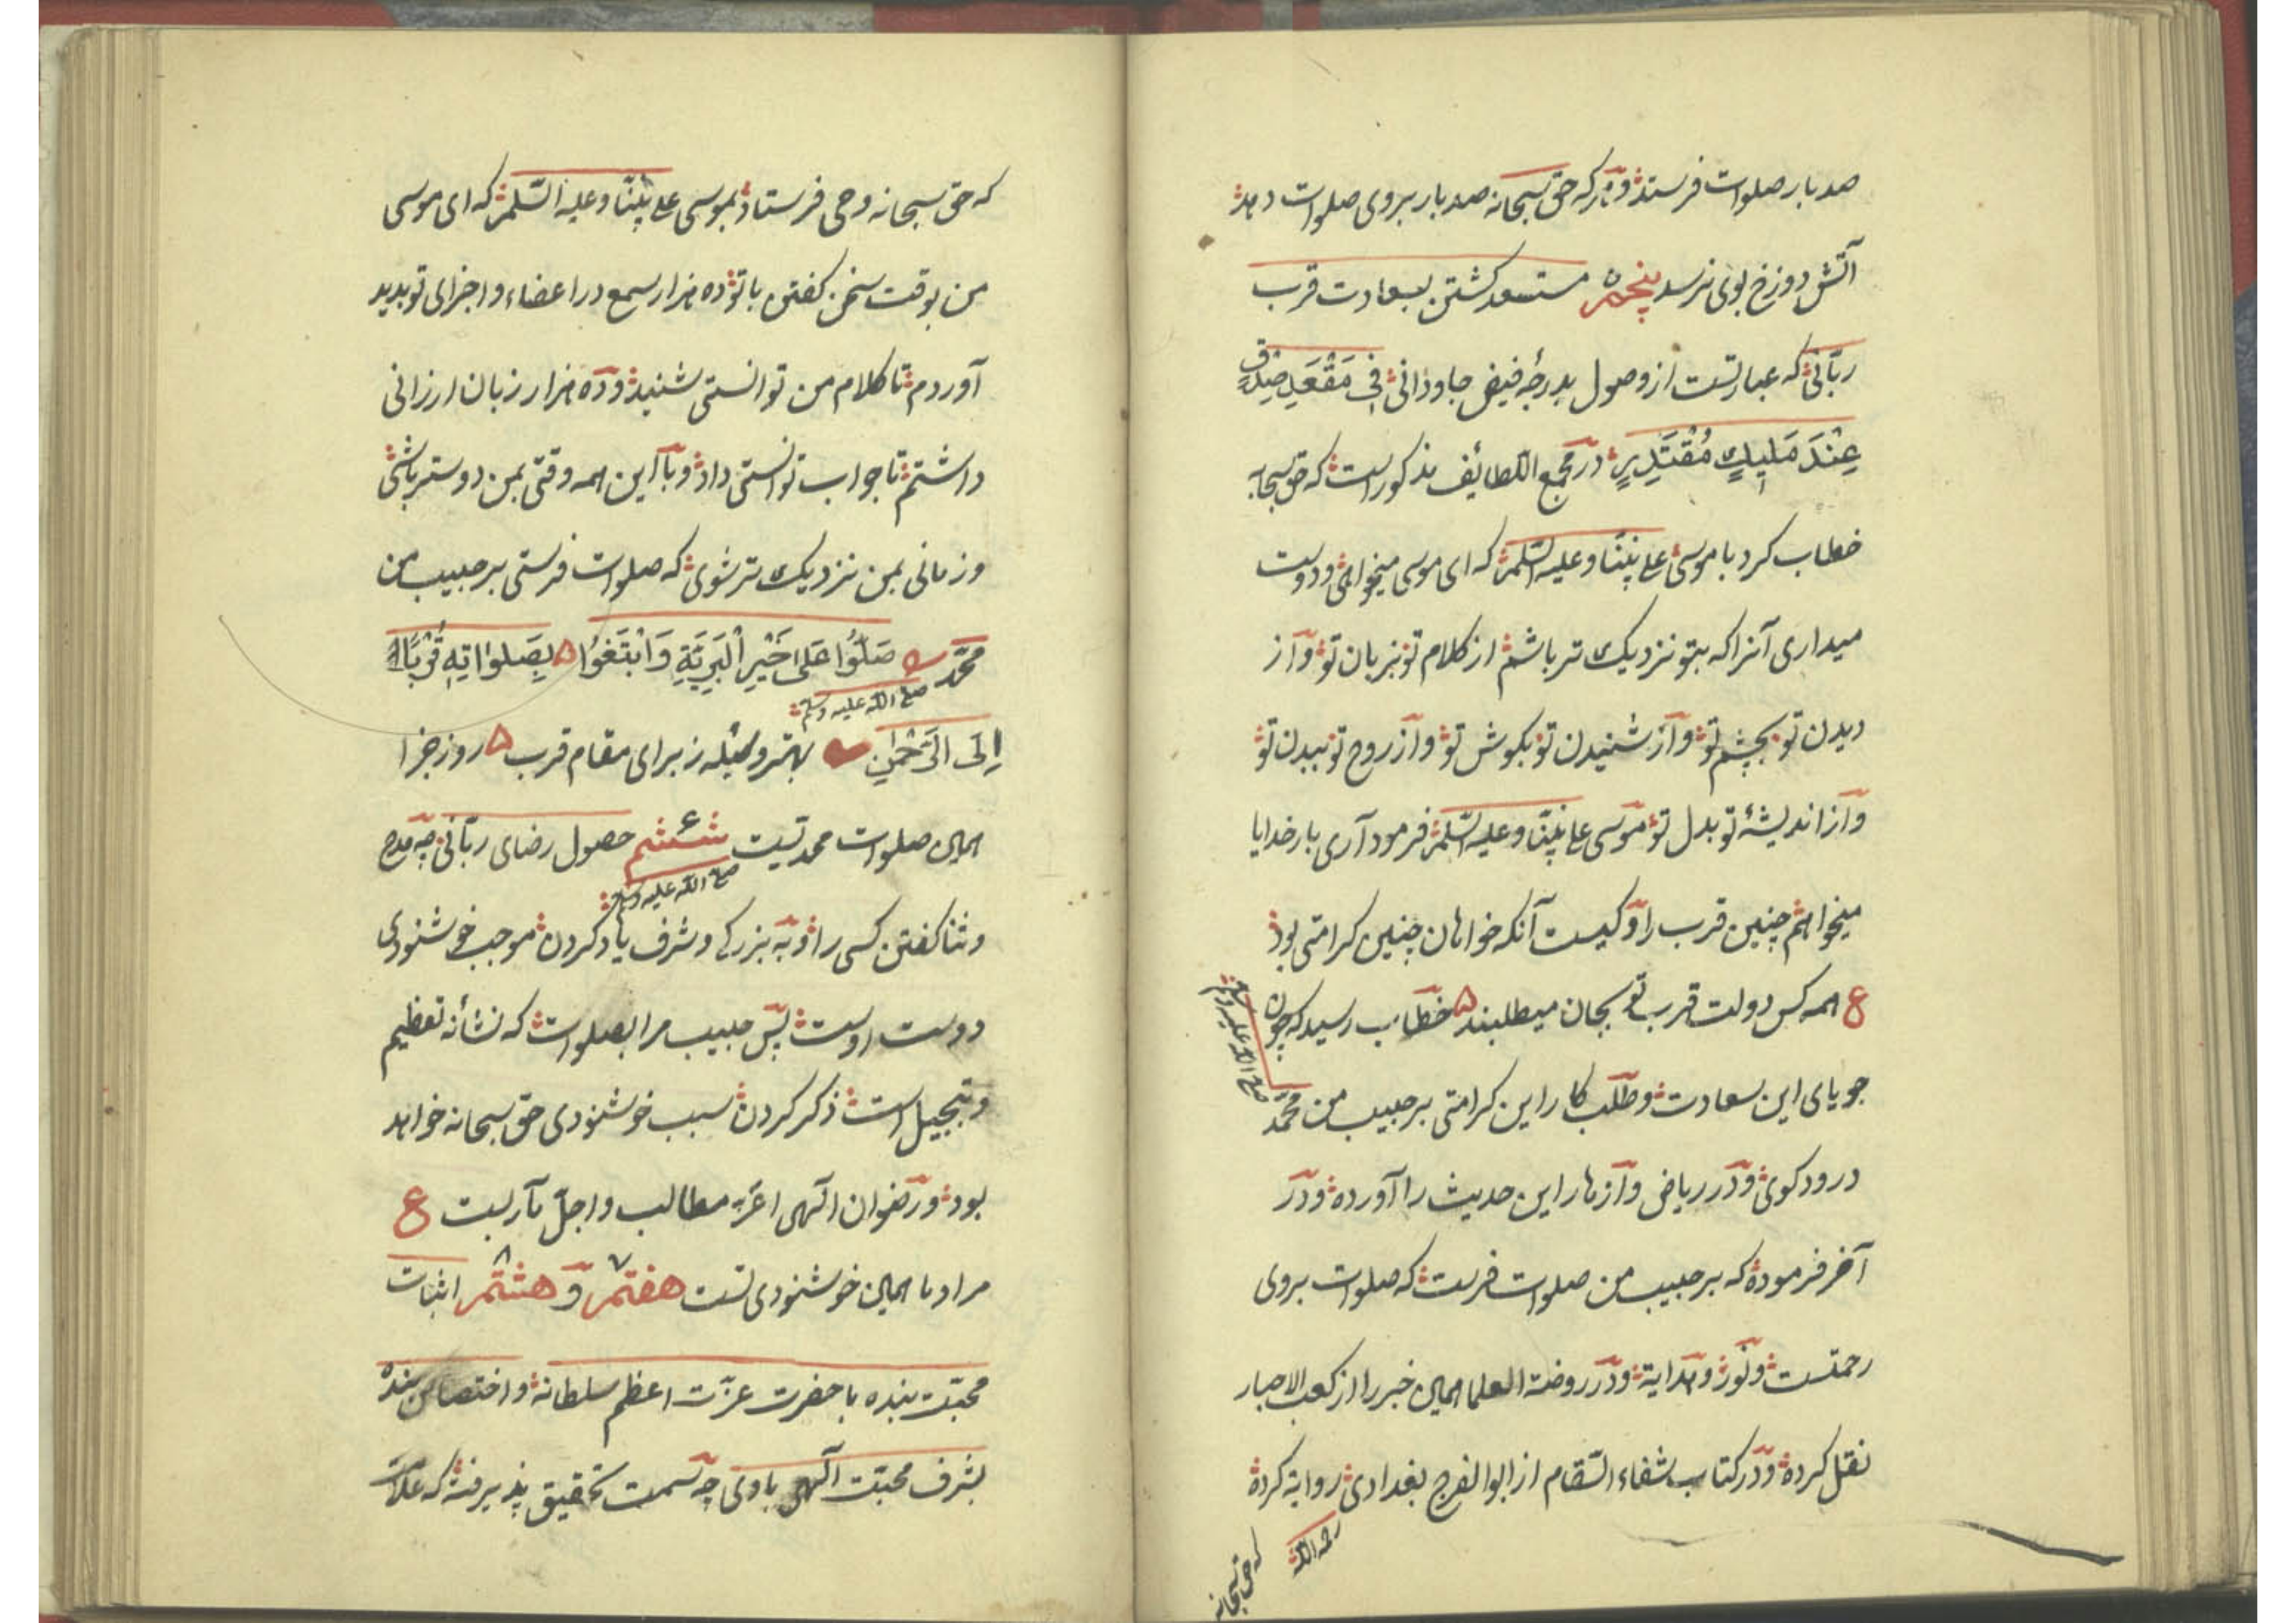 صد بار صلوات فرستد و هر که حق سبحانه صد بار بروی صلوات دهد
آتش دوزخ بوی نرسد پنجم ۵ مستسعد گشتن بسعادت قرب
ربّانی که عبارتست از وصول بدرجهٔ فیض جاودانی فِی مَقْعَدِ صِدْقٍ
عِنْدَ مَلِیكٍ مُقْتَدِرٍ در مجمع اللطائف مذکور است که حق سبحانه
خطاب کرد با موسی علی نبیّنا وعلیه السّلم که ای موسی میخواهی و دوست
میداری آنرا که بتو نزدیک تر باشم از کلام تو بزبان تو و از
دیدن تو بچشم تو و از شنیدن تو بکوش تو و از روح تو ببدن تو
و از اندیشهٔ تو بدل تو موسی علی نبیّنا وعلیه السّلم فرمود آری بار خدایا
میخواهم چنین قرب را و کیست آنکه خواهان چنین کرامتی بود
ع همه کس دولت قرب تو بجان میطلبند ۵ خطاب رسید که چون
جویای این سعادت و طلب کار این کرامتی بر حبیب من محمّد
صلی الله علیه وسلم
درود کوی و در ریاض و ازهار این حدیث را آورده و در
آخر فرموده که بر حبیب من صلوات فرست که صلوات بروی
رحمتست و نور و هدایة و در روضة العلما همین خبر را از کعب الاحبار
نقل کرده و در کتاب شفاء السّقام از ابو الفرج بغدادی روایة کرده
رحمه الله
که حق سبحانه
که حق سبحانه وحی فرستاد بموسی علی نبیّنا وعلیه السّلم که ای موسی
من بوقت سخن کفتن با تو ده هزار سمع در اعضاء و اجزای تو بدید
آوردم تا کلام من توانستی شنید و ده هزار زبان ارزانی
داشتم تا جواب توانستی داد و با این همه وقتی بمن دوستر باشی
و زمانی بمن نزدیک تر شوی که صلوات فرستی بر حبیب من
محمّد صَلُّوا عَلی خَیْرِ الْبَرِیَّةِ وَابْتَغُوا ۵ بِصَلَوٰاتِهِ قُرْبًا
صلی الله علیه وسلم
اِلَی الرَّحْمٰنِ بهتر وسیله ز برای مقام قرب ۵ روز جزا
همین صلوات محمدتیت ششم حصول رضای ربّانی چه مدح
صلی الله علیه وسلم
و ثنا کفتن کسی را و به بزرکی و شرف یاد کردن موجب خوشنودی
دوست اوست پس حبیب مرا بصلوات که نشأنه تعظیم
و تبجیل است ذکر کردن سبب خوشنودی حق سبحانه خواهد
بود و رضوان الهی اعزّ مطالب و اجلّ مآربست ع
مراد ما همین خوشنودی تست هفتم ۷ و هشتم ۸ اثبات
محبّت بنده با حضرت عزّت اعظم سلطانه و اختصاص بنده
بشرف محبّت الهی باوی چه سمت تحقیق پذیرفته که علامت